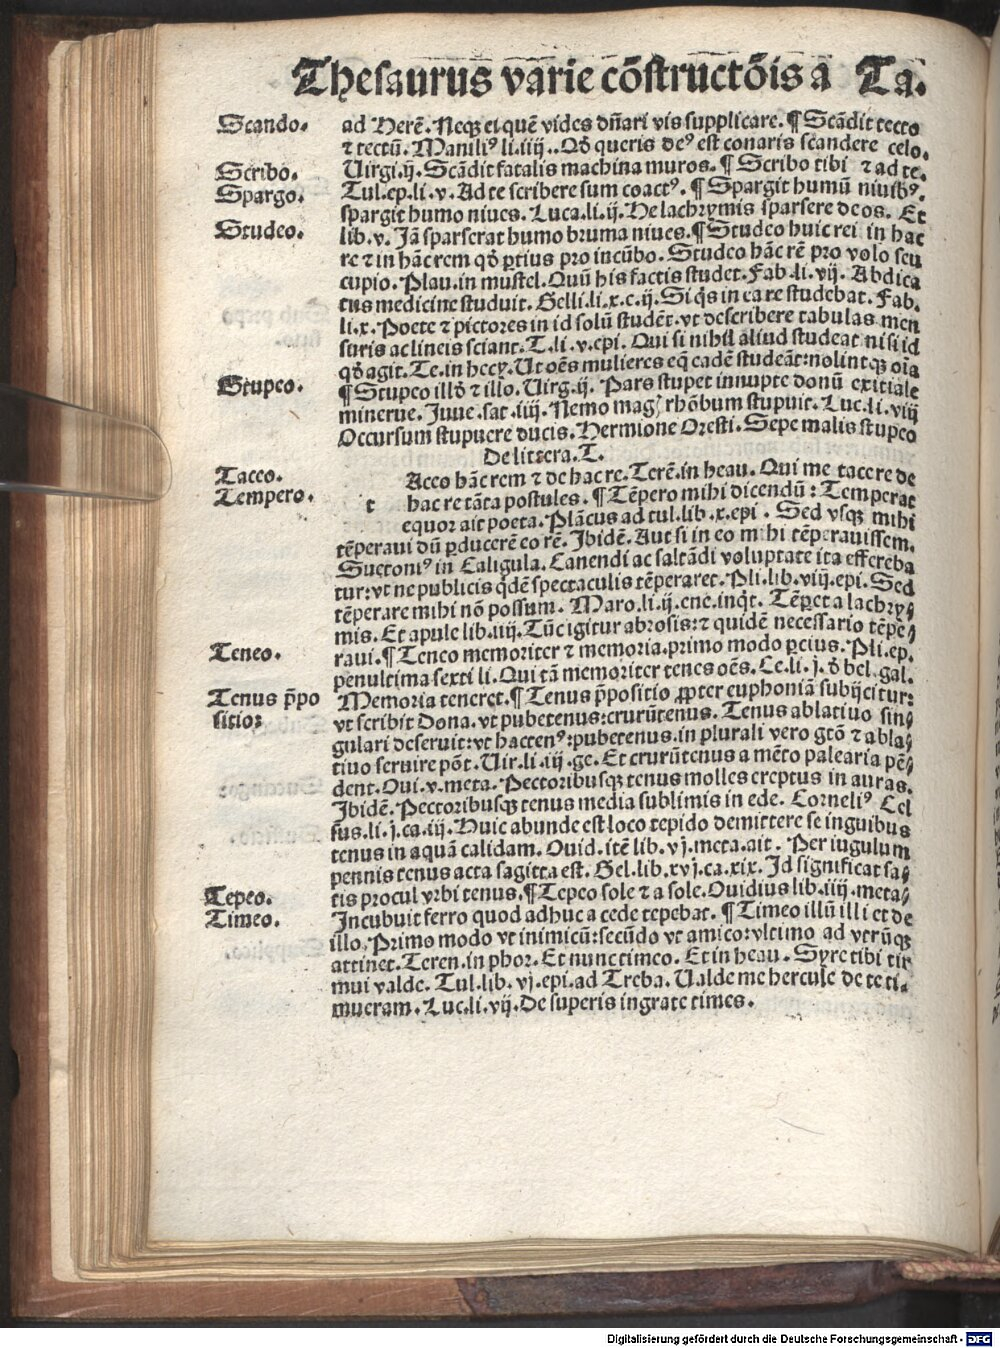 Thesaurus varie cõstructõis a Ta.
Scando. ad Herẽ. Neqꝫ ei quẽ vides dñari vis supplicare. ¶ Scãdit tecto
⁊ tectũ. Maniliꝰ li. iiij.. Qð queris deꝰ est conaris scandere celo.
Scribo. Uirgi. ij. Scãdit fatalis machina muros. ¶ Scribo tibi ⁊ ad te.
Spargo. Tul. ep. li. v. Ad te scribere sum coactꝰ. ¶ Spargit humũ niuibꝰ.
spargit humo niues. Luca. li. ij. He lachrymis sparsere deos. Et
Studeo. lib. v. Jã sparserat humo bruma niues. ¶ Studeo huic rei in hac
re ⁊ in hãc rem qð ꝑtius pro incũbo. Studeo hãc rẽ pro volo seu
cupio. Plau. in mustel. Quũ his factis studet. Fab. li. vij. Abdica
tus medicine studuit. Gelli. li. x. c. ij. Si q̃s in ea re studebat. Fab.
li. x. Poete ⁊ pictores in id solũ studẽt. vt describere tabulas men
suris ac lineis sciant. T. li. v. epi. Qui si nihil aliud studeat nisi id
qð agit. Te. in hecy. Ut oẽs mulieres eq̃ eadẽ studeãt: nolintqꝫ oĩa
Stupeo. ¶ Stupeo illð ⁊ illo. Uirg. ij. Pars stupet innupte donũ exitiale
minerue. Juue. sat. iiij. Nemo magꝭ rhõbum stupuit. Luc. li. viij
Occursum stupuere ducis. Hermione Oresti. Sepe malis stupeo
De littera. T.
Taceo. t Aceo hãc rem ⁊ de hac re. Terẽ. in heau. Qui me tacere de
Tempero. hac re tãta postules. ¶ Tẽpero mihi dicendũ: Temperat
equor ait poeta. Plãcus ad tul. lib. x. epi. Sed vsqꝫ mihi
tẽperaui dũ ꝑducerẽ eo rẽ. Jbidẽ. Aut si in eo mihi tẽperauissem.
Suetoniꝰ in Caligula. Canendi ac saltãdi voluptate ita effereba
tur: vt ne publicis q̃dẽ spectaculis tẽperaret. Pli. lib. viij. epi. Sed
tẽperare mihi nõ possum. Maro. li. ij. ene. inq̃t. Tẽperet a lachry⸗
mis. Et apule lib. iiij. Tũc igitur a brosis: ⁊ quidẽ necessario tẽpe⸗
Teneo. raui. ¶ Teneo memoriter ⁊ memoria. primo modo ꝑcius. Pli. ep.
penultima sexti li. Qui tã memoriter tenes oẽs. Ce. li. j. ð bel. gal.
Tenus p̃po Memoria teneret. ¶ Tenus p̃positio ꝓpter euphoniã subijcitur:
sitio: vt scribit Dona. vt pubetenus: crurũtenus. Tenus ablatiuo sin⸗
gulari deseruit: vt hactenꝰ: pubetenus. in plurali vero gtõ ⁊ abla⸗
tiuo seruire põt. Uir. li. iij. ge. Et crurũtenus a mẽto palearia pẽ⸗
dent. Oui. v. meta. Pectoribusqꝫ tenus molles ereptus in auras.
Jbidẽ. Pectoribusqꝫ tenus media sublimis in ede. Corneliꝰ Cel
sus. li. j. ca. iij. Huic abunde est loco tepido demittere se inguibus
tenus in aquã calidam. Ouid. itẽ lib. vj. meta. ait. Per iugulum
pennis tenus acta sagitta est. Gel. lib. xvj. ca. xix. Jd significat sa⸗
Tepeo. tis procul vrbi tenus. ¶ Tepeo sole ⁊ a sole. Ouidius lib. iiij. meta⸗
Timeo. Jncubuit ferro quod adhuc a cede tepebat. ¶ Timeo illũ illi et de
illo. Primo modo vt inimicũ: secũdo vt amico: vltimo ad vtrũqꝫ
attinet. Teren. in phor. Et nunc timeo. Et in heau. Syre tibi ti⸗
mui valde. Tul. lib. vj. epi. ad Treba. Ualde me hercule de te ti⸗
mueram. Luc. li. vij. De superis ingrate times.
Digitalisierung gefördert durch die Deutsche Forschungsgemeinschaft - DFG